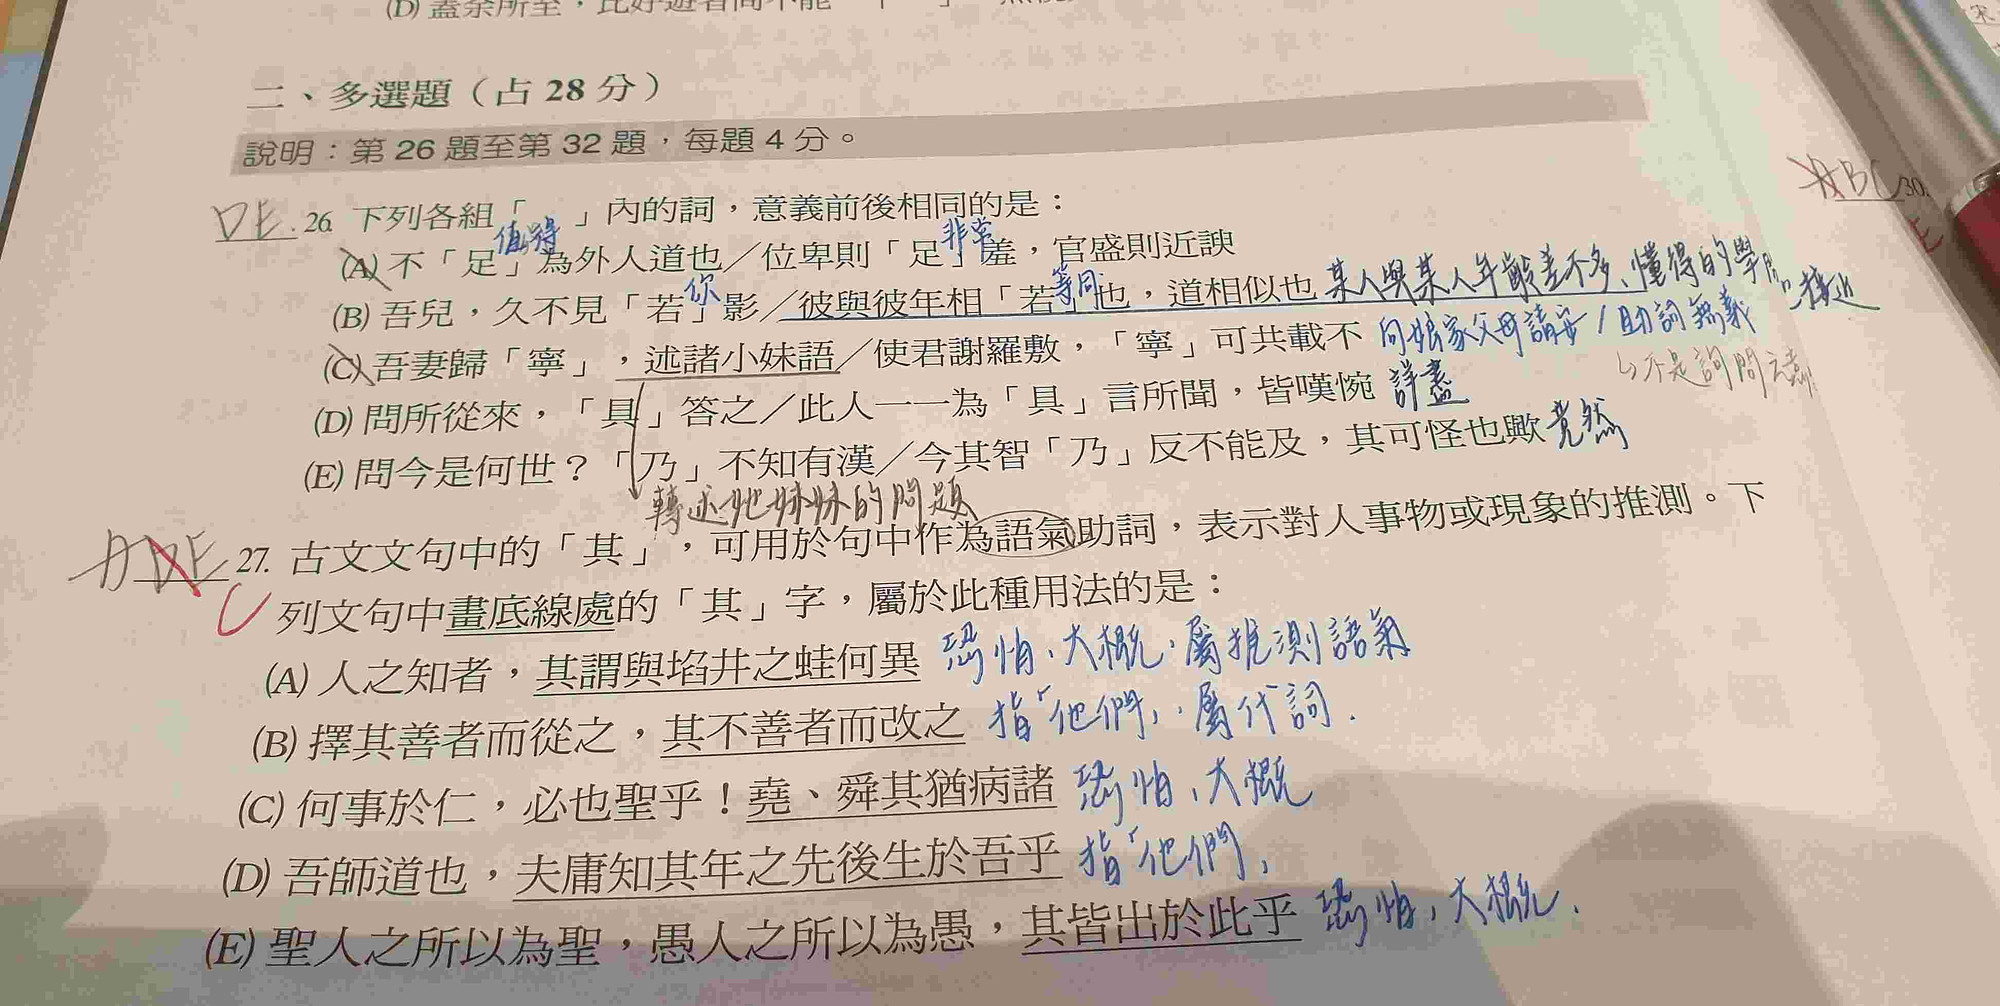 (D) 蓋余所至，比好遊者尚不能「
二、多選題（占 28 分）
說明：第 26 題至第 32 題，每題 4 分。
DE 26. 下列各組「 」內的詞，意義前後相同的是：
值得 非常
(A) 不「足」為外人道也／位卑則「足」羞，官盛則近諛
你 等同
(B) 吾兒，久不見「若」影／彼與彼年相「若」也，道相似也 某人與某人年齡差不多、懂得的學問 接近
(C) 吾妻歸「寧」，述諸小妹語／使君謝羅敷，「寧」可共載不 向娘家父母請安/助詞無義
不是詢問意願
(D) 問所從來，「具」答之／此人一一為「具」言所聞，皆嘆惋 詳盡
(E) 問今是何世？「乃」不知有漢／今其智「乃」反不能及，其可怪也歟 竟然
轉述她妹妹的問題
ADE 27. 古文文句中的「其」，可用於句中作為語氣助詞，表示對人事物或現象的推測。下
C 列文句中畫底線處的「其」字，屬於此種用法的是：
(A) 人之知者，其謂與埳井之蛙何異 恐怕、大概，屬推測語氣
(B) 擇其善者而從之，其不善者而改之 指「他們」，屬代詞.
(C) 何事於仁，必也聖乎！堯、舜其猶病諸 恐怕、大概
(D) 吾師道也，夫庸知其年之先後生於吾乎 指「他們」
(E) 聖人之所以為聖，愚人之所以為愚，其皆出於此乎 恐怕，大概.
ABC 30.
E